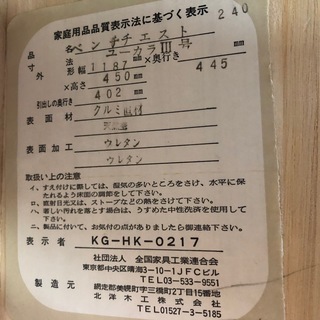 家庭用品品質表示法に基づく表示
240
品名 ベンチチエスト
ユーカラIII号
寸法 外形幅 1187 mm×奥行き 445 mm
×高さ 450 mm
引出しの奥行き 402 mm
表面材 クルミ
表面加工 ウレタン
ウレタン
取扱い上の注意
イ、すえ付けに際しては、湿気の多いところをさけ、水平に保たれるよう床面の調節をして下さい。
ロ、直射日光又は、ストーブなどの熱をさけて下さい。
ハ、著しい汚れを落とす場合は、うすめた中性洗剤を使用して下さい。
ニ、製品について、お気付の点がありましたら御連絡下さい。
表示者 KG-HK-0217
社団法人 全国家具工業連合会
東京都中央区晴海3-10-1JFCビル
TEL 03-533-9551
製造元 網走郡美幌町字三橋町2丁目15番地
北洋木工株式会社
TEL 01527-3-5185